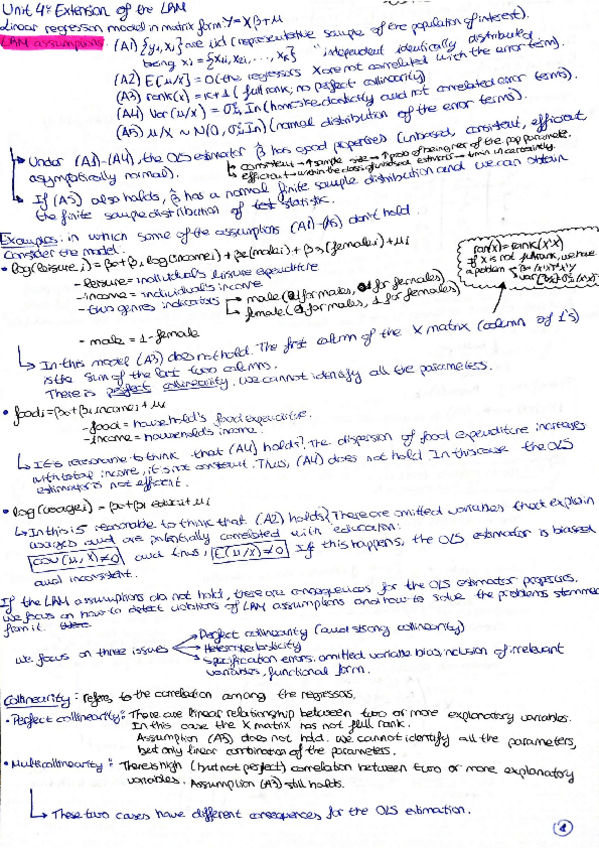 Unit 4: Extension of the LRM
Linear regression model in matrix form Y = Xβ + μ
LRM assumptions. (A1) {yi, xi} are iid (representative sample of the population of interest).
being xi = {x1i, x2i, ..., xk} "independent identically distributed
(A2) E[μ/x] = 0 (the regressors X are not correlated with the error term).
(A3) rank(x) = k+1 (full rank; no perfect collinearity)
(A4) Var(μ/x) = σ²In (homoskedasticity and not correlated error terms).
(A5) μ/x ~ N(0, σ²In) (normal distribution of the error terms).
↳ Under (A1)-(A4), the OLS estimator β̂ has good properties (unbiased, consistent, efficient
asymptotically normal).
consistent → ↑ sample size → ↑ prob of being near of the pop parameter.
efficient → within the class of unbiased estimators → min uncertainty.
↳ If (A5) also holds, β̂ has a normal finite sample distribution and we can obtain
the finite sample distribution of test statistic.
Examples: in which some of the assumptions (A1)-(A5) don't hold
Consider the model.
• log(leisure i) = β0 + β1 log(incomei) + β2(malei) + β3(femalei) + μi
- leisure = individual's leisure expenditure
- income = individual's income
- two genres indicators → male (1 for males, 0 for females)
→ female (0 for males, 1 for females)
- male = 1 - female
ran(x) = rank(X'X)
If X is not full rank, we have
a problem
↳ In this model (A3) does not hold. The first column of the X matrix (column of 1's)
is the sum of the last two colums.
There is perfect collinearity. We cannot identify all the parameters.
• foodi = β0 + β1 incomei + μi
- food = household's food expenditure.
- income = household's income.
↳ It is reasonable to think that (A4) holds?, The dispersion of food expenditure increases
with total income, it is not constant. Thus, (A4) does not hold. In this case the OLS
estimator is not efficient.
• log(wagei) = β0 + β1 educi + μi
↳ In this is reasonable to think that (A2) holds? There are omitted variables that explain
wages and are potentially correlated with education:
cov(μ, x) ≠ 0 and thus, E(μ/x) ≠ 0 If this happens, the OLS estimator is biased
and inconsistent.
If the LRM assumptions do not hold, there are consequences for the OLS estimator properties.
We focus on how to detect violations of LRM assumptions and how to solve the problems stemmed
from it.
We focus on three issues → Perfect collinearity (and strong collinearity)
→ Heteroskedasticity
→ Specification errors: omitted variable bias, inclusion of irrelevant
variables, functional form.
Collinearity: refers to the correlation among the regressors.
• Perfect collinearity: There are linear relationship between two or more explanatory variables.
In this case the X matrix has not full rank.
Assumption (A3) does not hold. We cannot identify all the parameters,
but only linear combination of the parameters.
• Multicollinearity: There is high (but not perfect) correlation between two or more explanatory
variables. Assumption (A3) still holds.
↳ These two cases have different consequences for the OLS estimation.
1